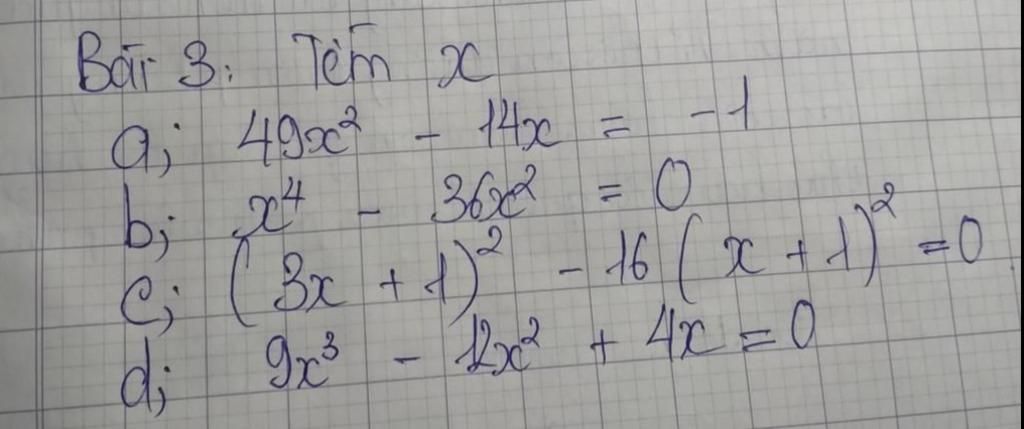 Bài 3: Tìm x
a; 49x² - 14x = -1
b; x⁴ - 36x² = 0
c; (3x + 1)² - 16(x + 1)² = 0
d; 9x³ - 12x² + 4x = 0